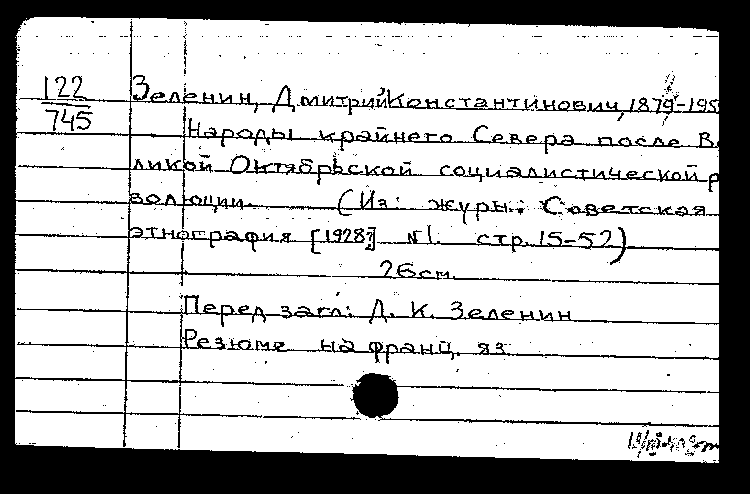 122
745
Зеленин, Дмитрий Константинович, 1879-195
Народы крайнего Севера после В
ликой Октябрьской социалистической р
волюции. (Из: журн.: Советская
этнография [1928?] №1. стр. 15-52)
26см.
Перед загл: Д. К. Зеленин
Резюме на франц. яз